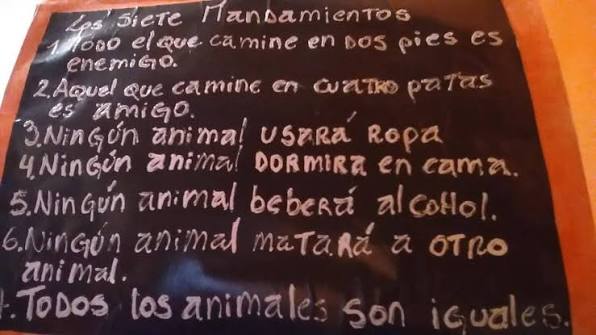 Los Siete Mandamientos
1. Todo el que camine en dos pies es
enemigo.
2. Aquel que camine en cuatro patas
es amigo.
3. Ningún animal usará ropa
4. Ningún animal dormira en cama.
5. Ningún animal beberá alcohol.
6. Ningún animal matará a otro
animal.
7. Todos los animales son iguales.